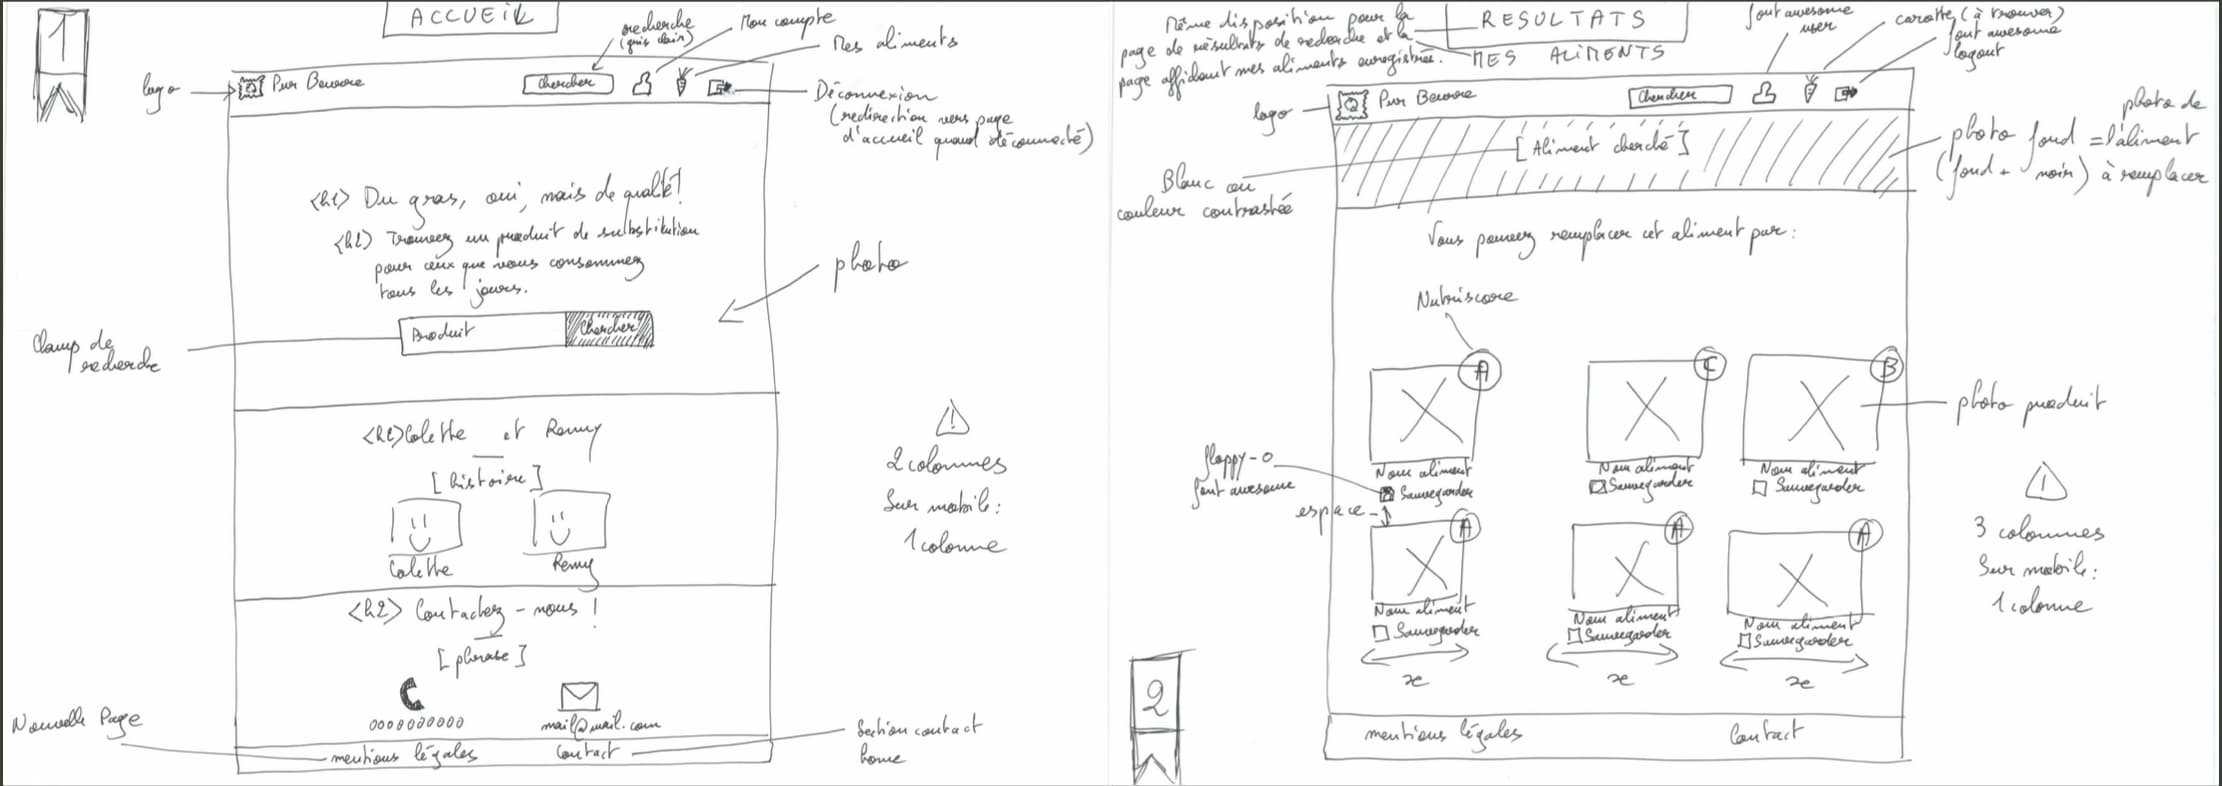 1
ACCUEIL
recherche
(gris clair)
Mon compte
Mes aliments
logo
Pur Beurre
Chercher
Déconnexion
(redirection vers page
d'accueil quand déconnecté)
<h1> Du gras, oui, mais de qualité!
<h2> Trouvez un produit de substitution
pour ceux que vous consommez
tous les jours.
photo
Champ de
recherche
Produit
Chercher
<h2> Colette et Remy
[histoire]
Colette
Remy
!
2 colonnes
Sur mobile:
1 colonne
<h2> Contactez-nous!
[phrase]
0000000000
mail@mail.com
Nouvelle Page
mentions légales
Contact
Section contact
home
Même disposition pour la
page de résultats de recherche et la
page affichant mes aliments enregistrés.
RESULTATS
MES ALIMENTS
font awesome
user
carotte (à trouver)
font awesome
logout
logo
Pur Beurre
Chercher
[Aliment cherché]
Blanc ou
couleur contrastée
photo de
photo fond = l'aliment
(fond + noir) à remplacer
Vous pouvez remplacer cet aliment par:
Nutriscore
A
C
B
photo produit
Nom aliment
Nom aliment
Nom aliment
floppy-o
font awesome
Sauvegarder
Sauvegarder
Sauvegarder
espace
A
A
A
Nom aliment
Nom aliment
Nom aliment
Sauvegarder
Sauvegarder
Sauvegarder
x
x
x
!
3 colonnes
Sur mobile:
1 colonne
2
mentions légales
Contact